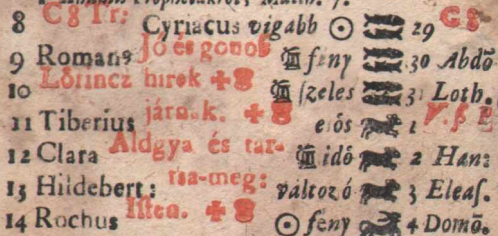 8 C8 Tr: Cyriacus vigabb 29 G8
9 Romanꝰ Jó és gonoß fény 30 Abdō
10 Lőrincz hirek szeles 31 Loth.
11 Tiberius járnak. esős 1
12 Clara Aldgya és tar- idő 2 Hanz
13 Hildebert: tsa-meg: változó 3 Eleaſ.
14 Rochus Iſten. fény 4 Domō.